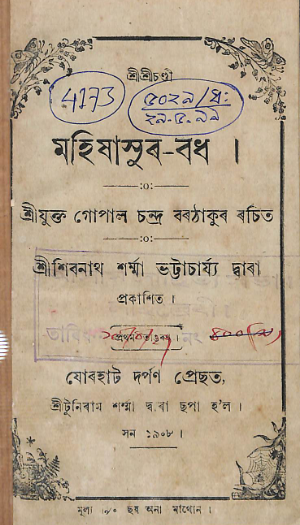 শ্ৰীশ্ৰীচণ্ডী
4173
৫০২৯/ধ:
২৯-৫-৯৯
মহিষাসুৰ-বধ ।
:০:
শ্ৰীযুক্ত গোপাল চন্দ্ৰ বৰঠাকুৰ ৰচিত
:০:
শ্ৰীশিবনাথ শৰ্ম্মা ভট্টাচাৰ্য্য দ্বাৰা
প্ৰকাশিত ।
যোৰহাট দৰ্পণ প্ৰেছত,
শ্ৰীটুনিৰাম শৰ্ম্মা দ্বাৰা ছপা হ'ল ।
সন ১৯০৮ ।
মূল্য ৷৵০ ছয় অনা মাথোন ।